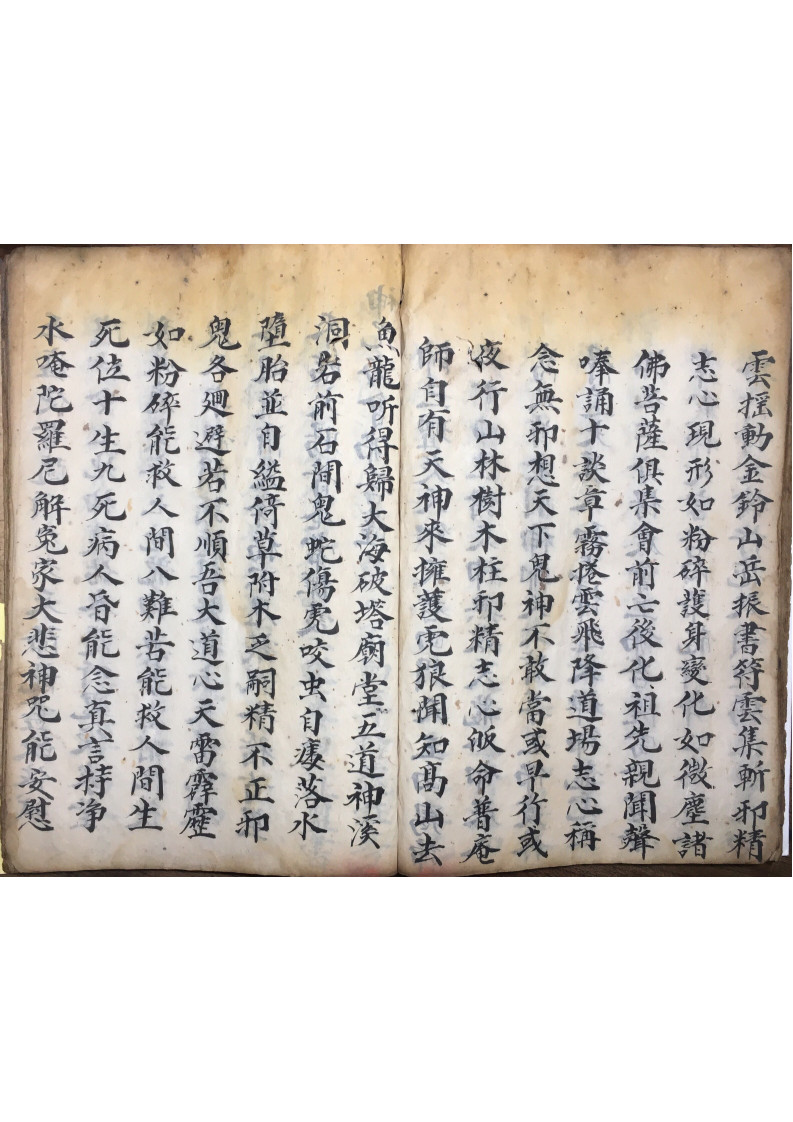 雲揺動金鈴山岳振書符雲集斬邪精
志心現形如粉碎護身變化如微塵諸
佛菩薩俱集會前亡後化祖先親聞聲
唪誦十談章霧捲雲飛降道場志心稱
念無邪想天下鬼神不敢當或早行或
夜行山林樹木柱邪精志心皈命普庵
師自有天神來擁護虎狼聞知髙山去
魚龍听得歸大海破塔廟堂五道神溪
洞岩前石間鬼蛇傷虎咬虫自瘘落水
墮胎並自縊倚草附木乏嗣精不正邪
鬼各廻避若不順吾大道心天雷霹靂
如粉碎能救人間八難苦能救人間生
死位十生九死病人昏能念真言持净
水唵陀羅尼解冤家大悲神咒能安慰